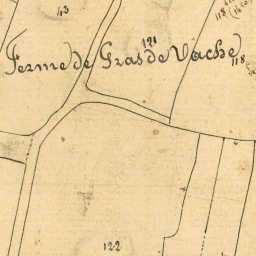 43
118
121
Ferme de Gras de Vache
118
122